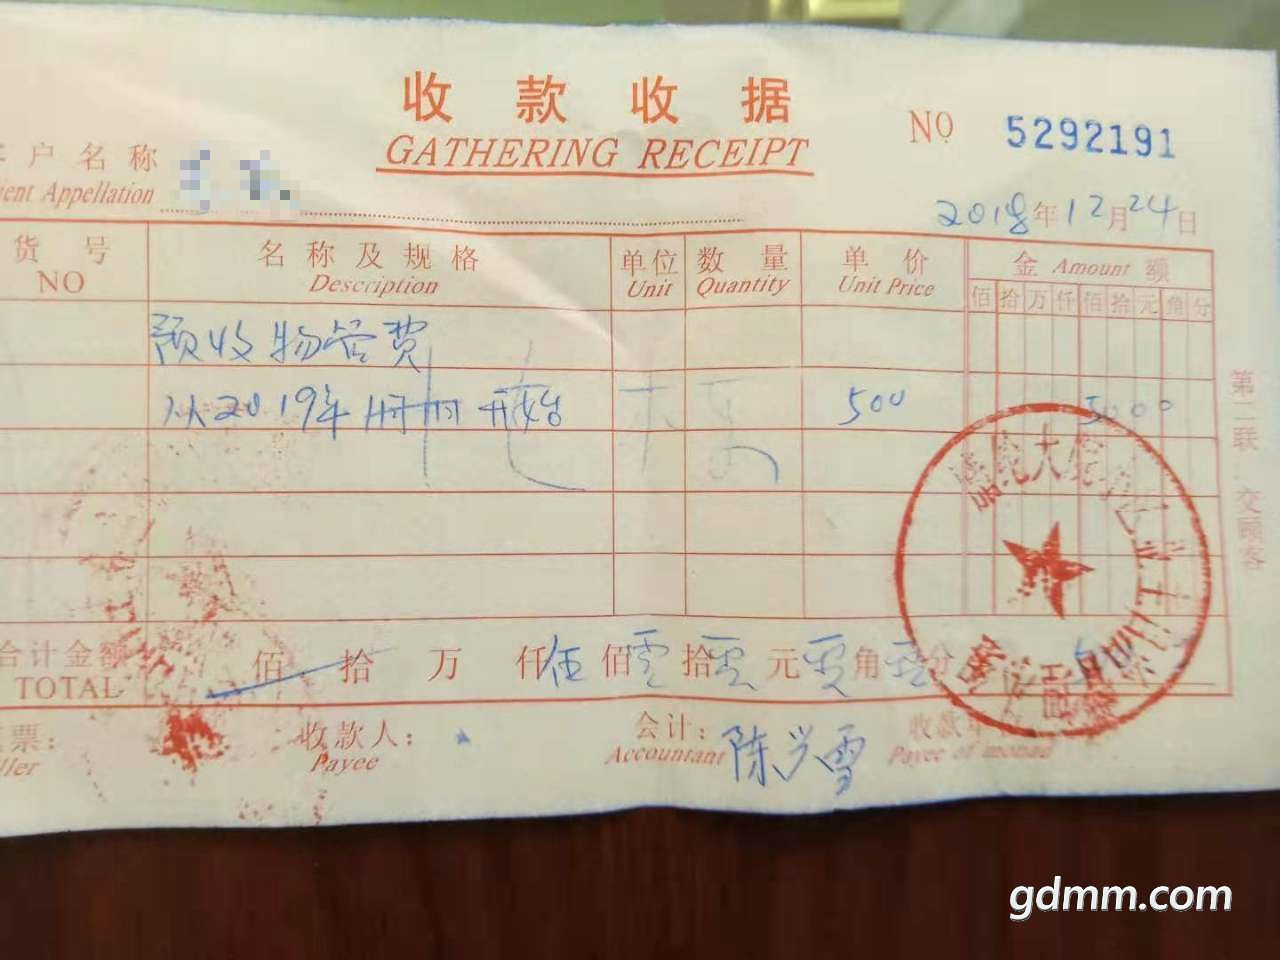 收款收据
GATHERING RECEIPT
NO 5292191
户名称
Appellation
2018年12月24日
货号 名称及规格 单位 数量 单价 金 Amount 额
NO Description Unit Quantity Unit Price
佰 拾 万 仟 佰 拾 元 角 分
预收物管费
从2019年 开始 500 50000
第二联 交顾客
合计金额 佰 拾 万 仟 伍 佰 零 拾 零 元 零 角 零 分
TOTAL
票: 收款人: 会计: 陈兴雪 收款
Payee Accountant Payee of
gdmm.com